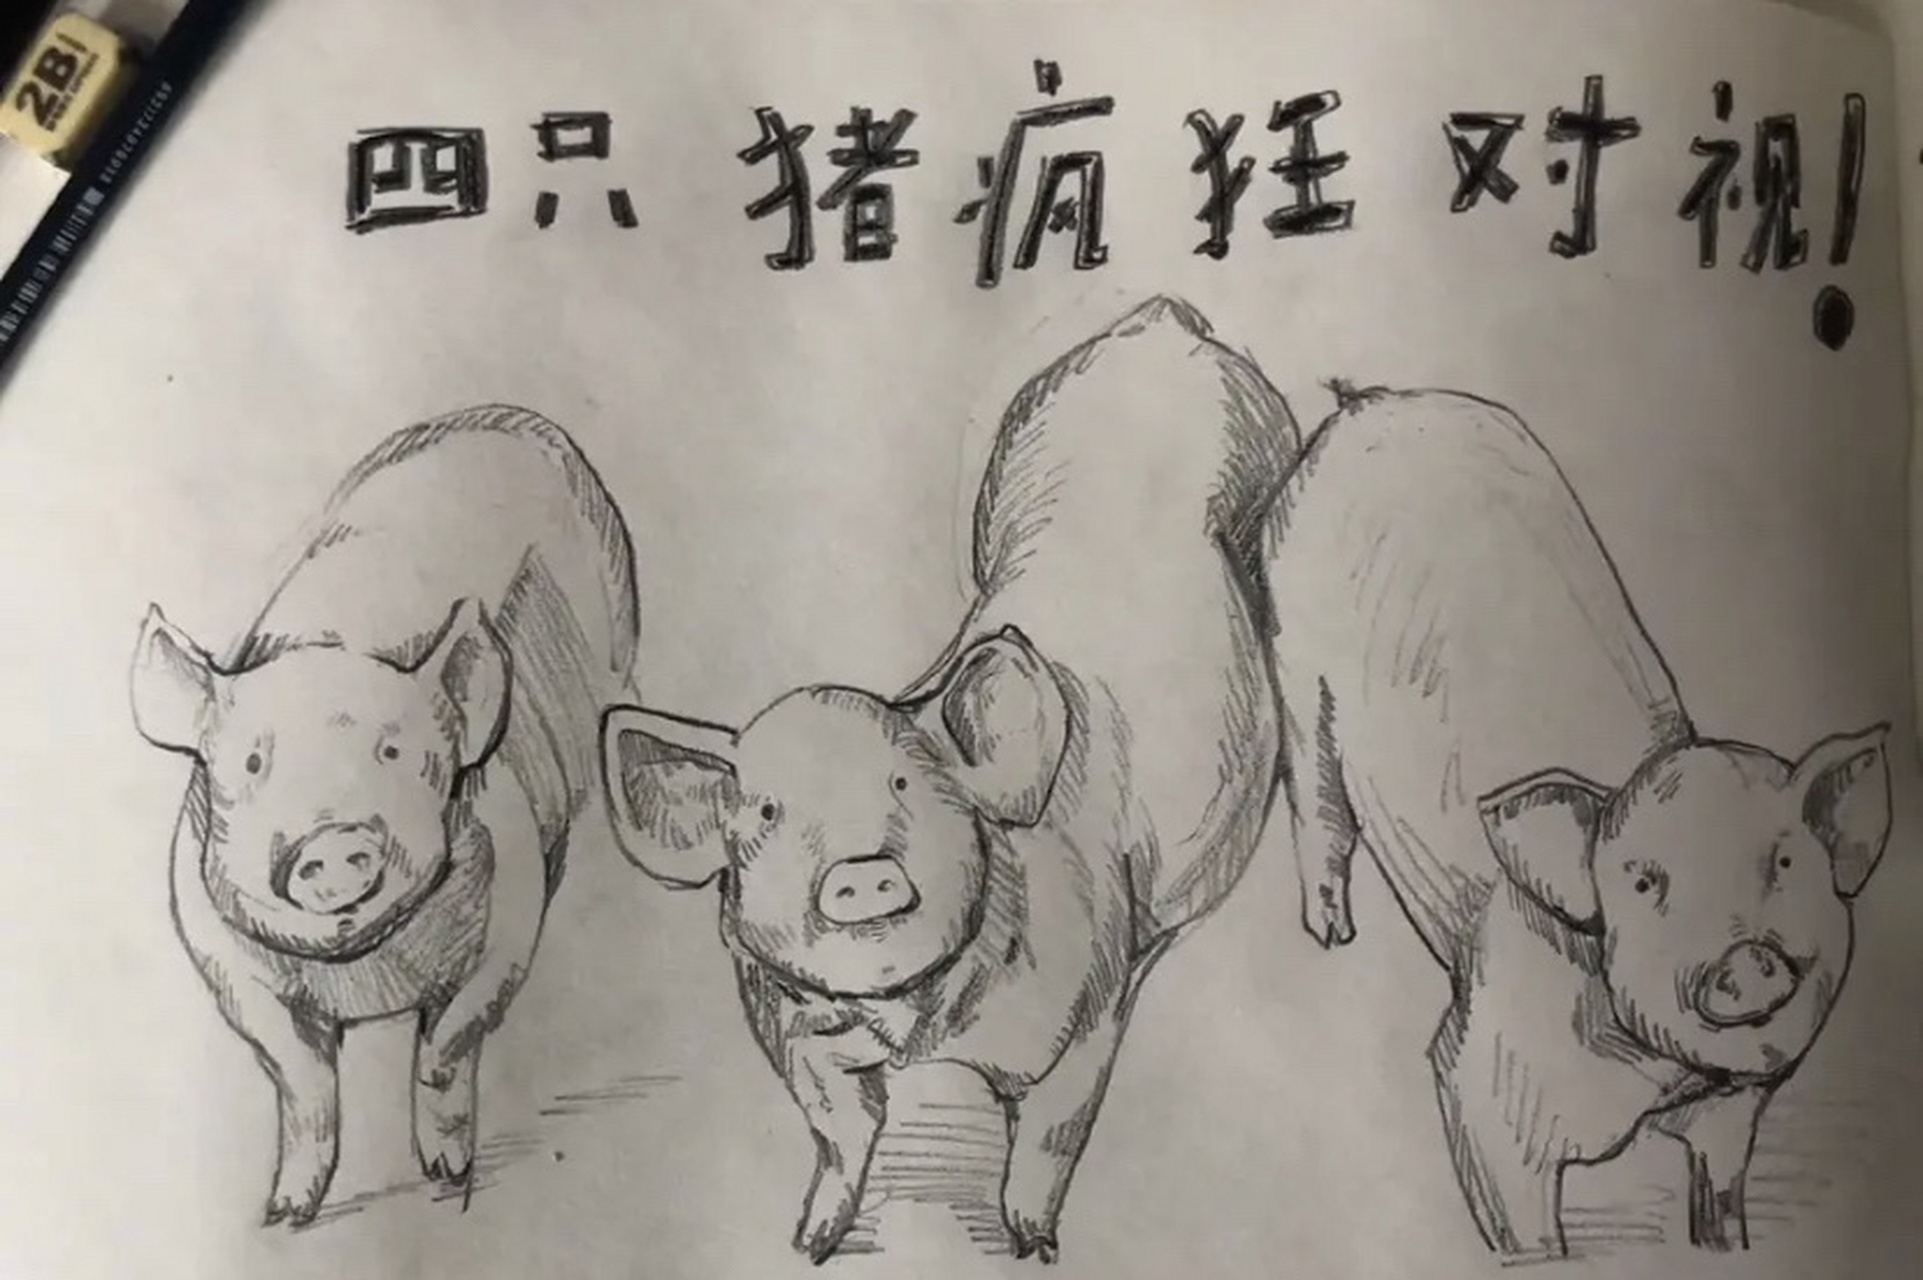 2B
四只猪疯狂对视!